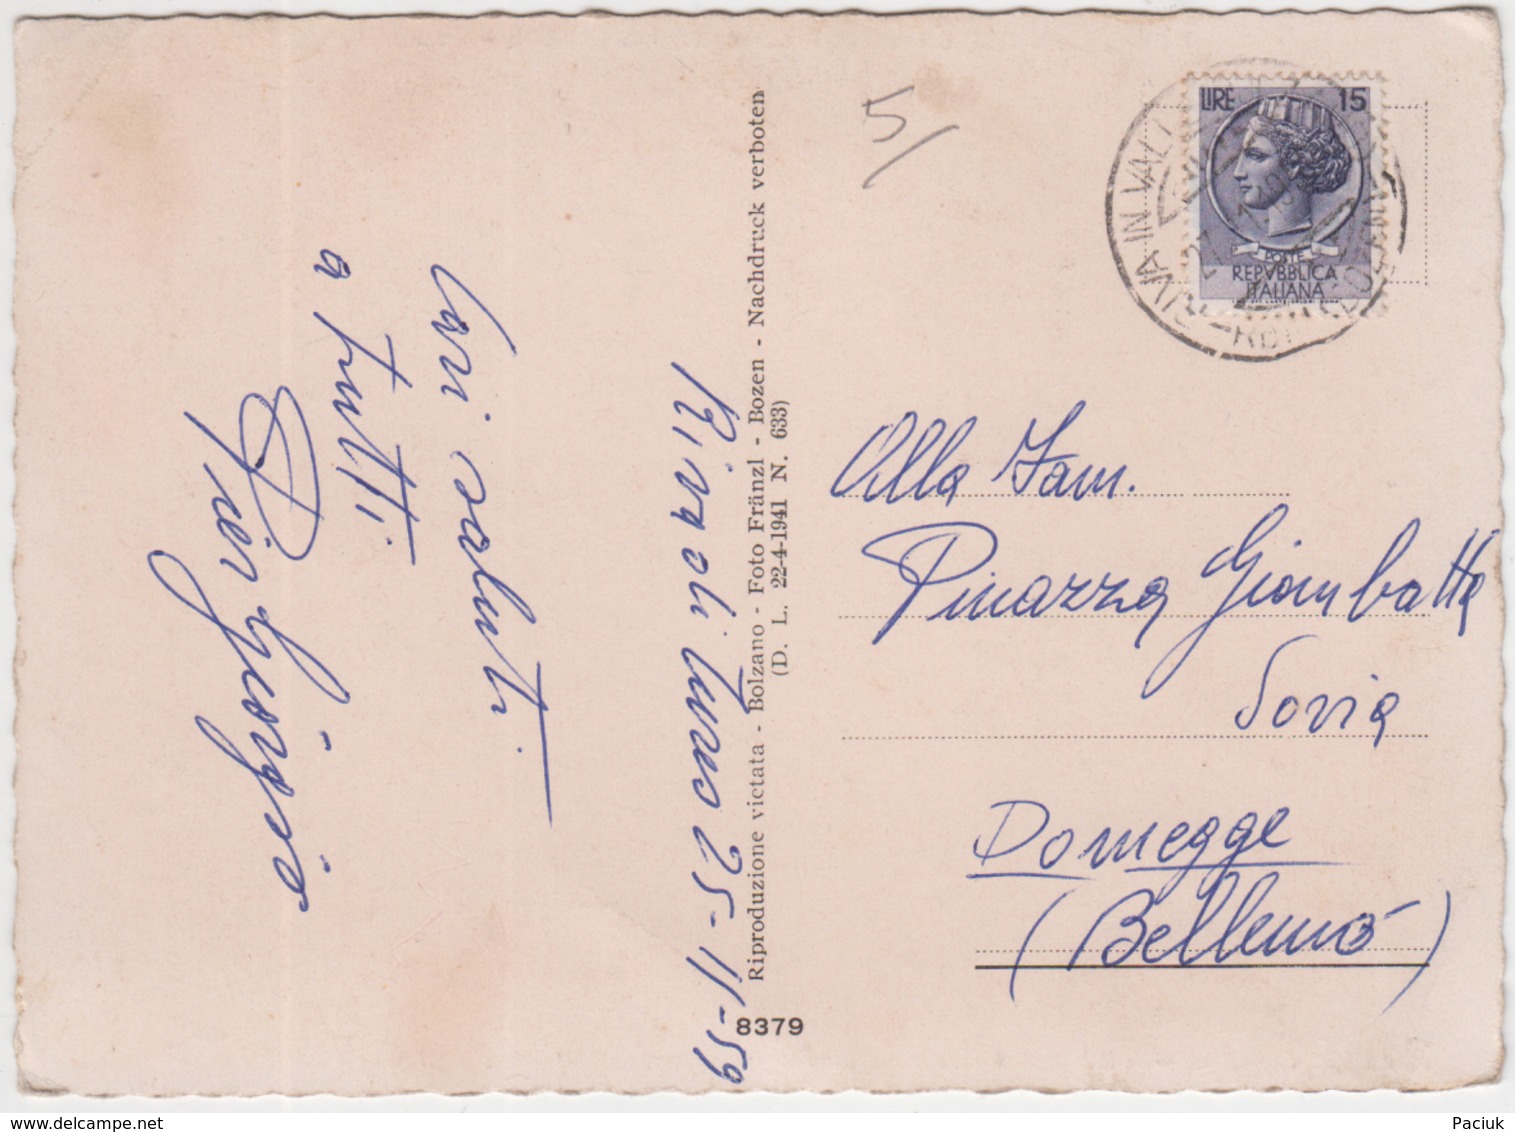 Riva di Tures 25-11-59
Cari saluti
a tutti
Pier Giorgio
Riproduzione vietata - Bolzano - Foto Fränzl - Bozen - Nachdruck verboten
(D. L. 22-4-1941 N. 633)
8379
5/
LIRE 15
POSTE
REPVBBLICA
ITALIANA
RIVA IN VALLE
Alla Fam.
Pinazza Giambatta
Soria
Domegge
(Belluno)
delcampe.net
Paciuk